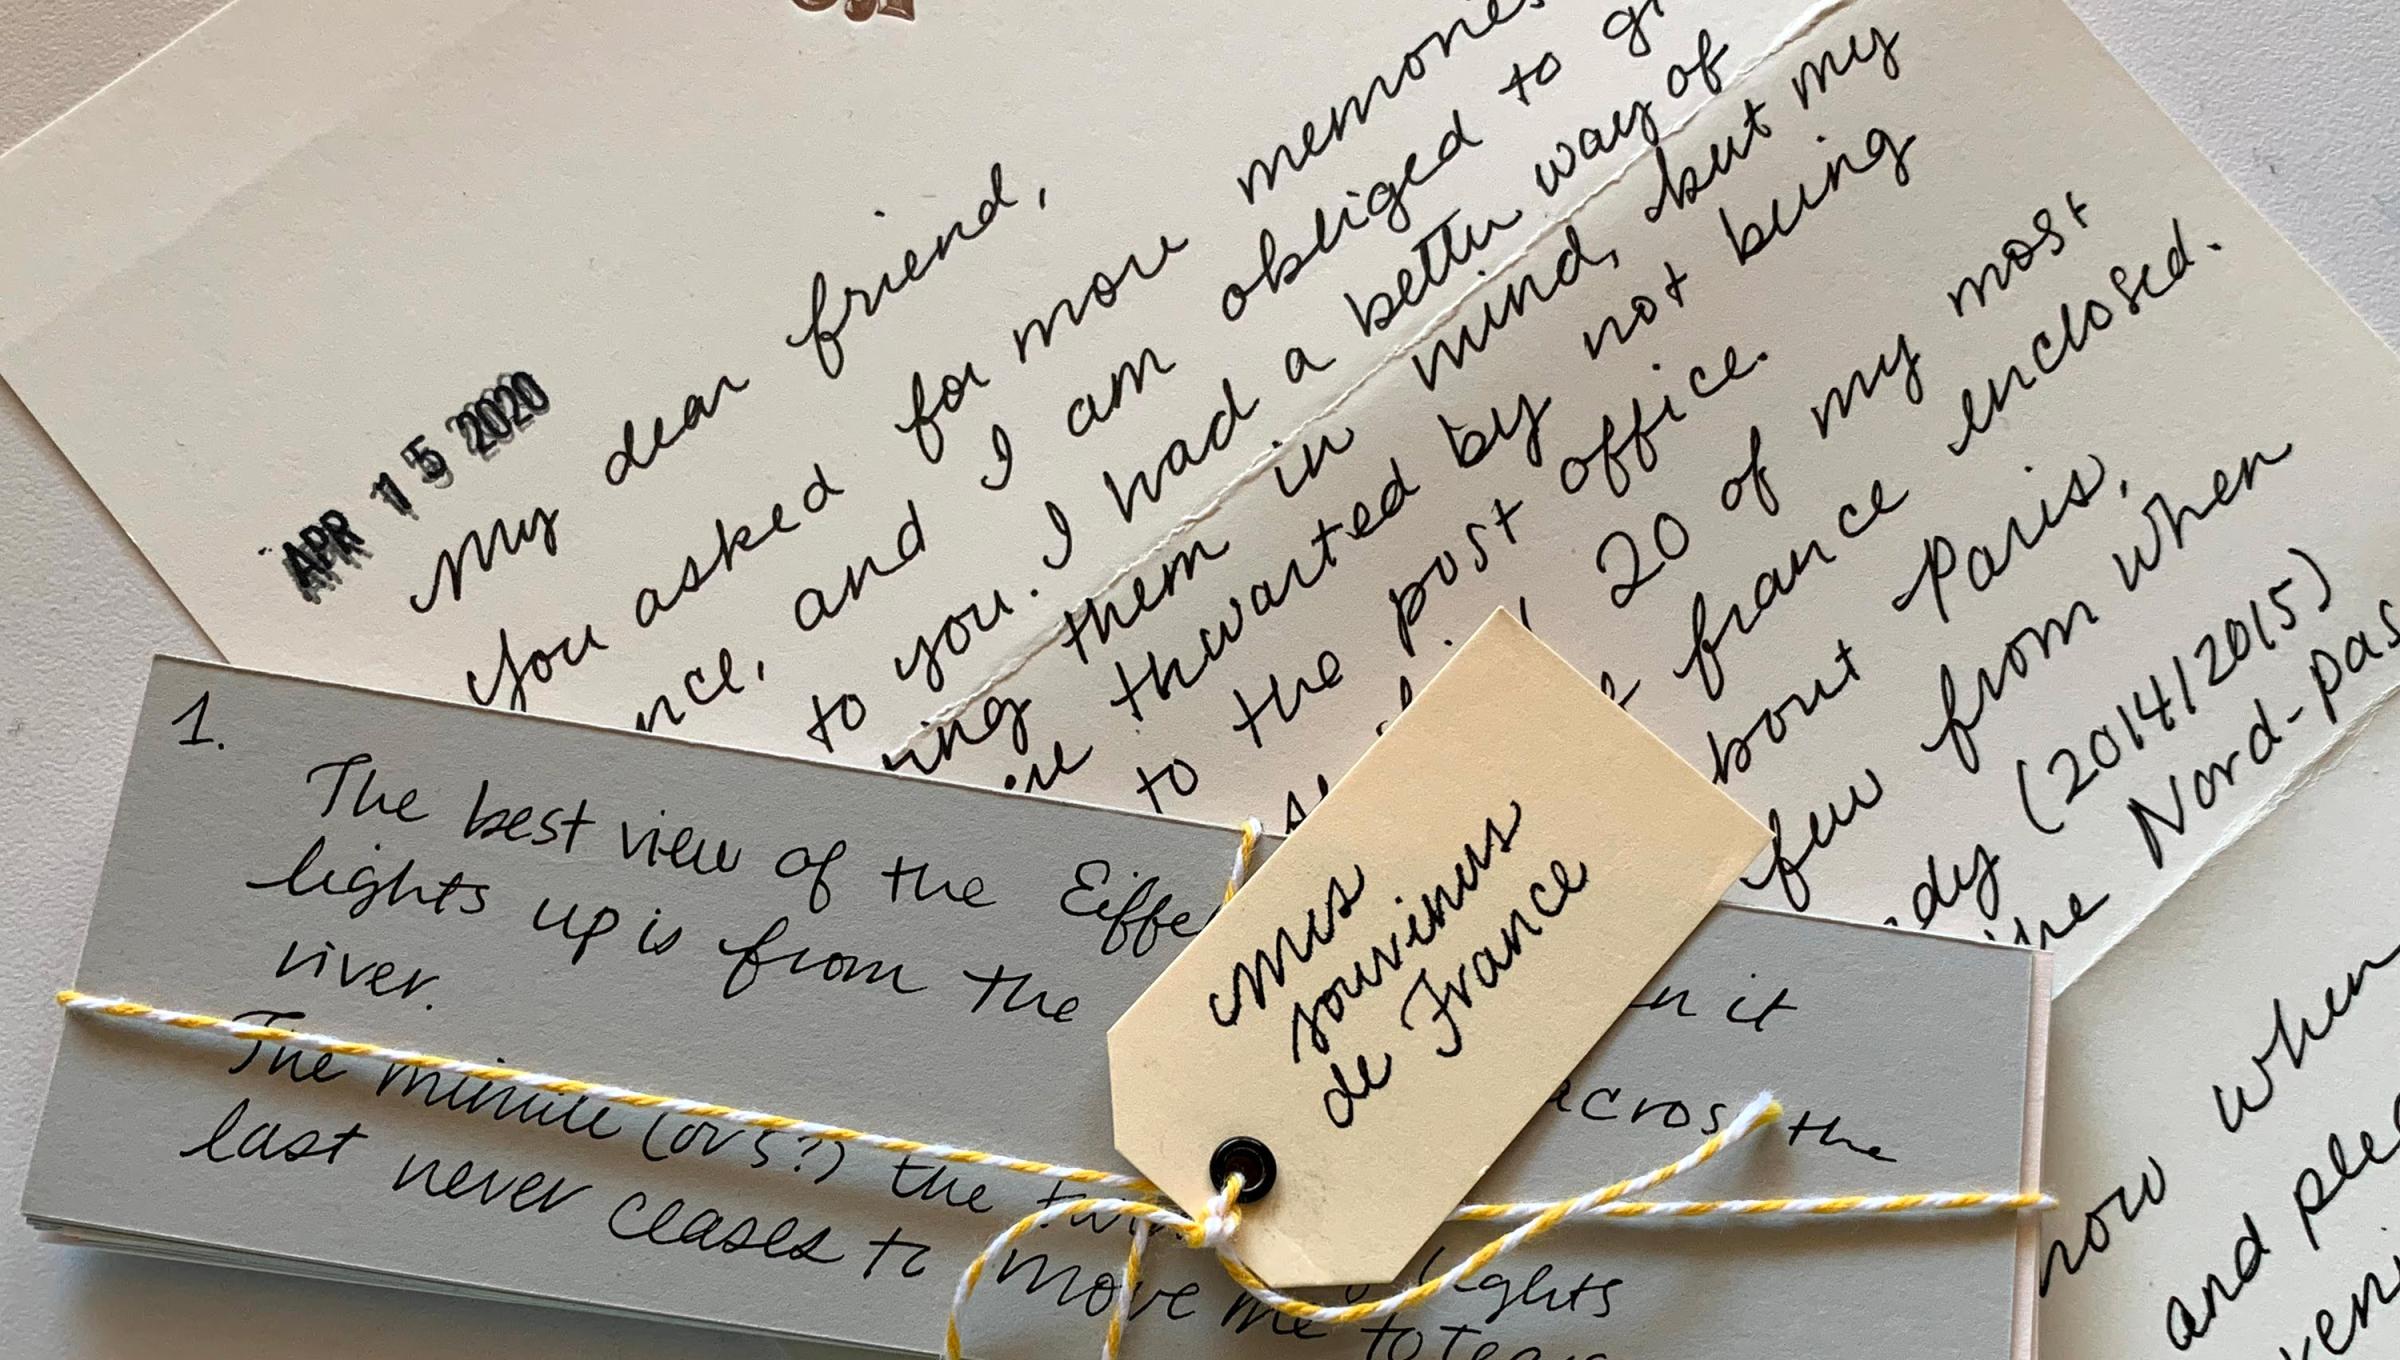 APR 15 2020
My dear friend,
You asked for more memories
nce, and I am obliged to
to you. I had a better way of
ing them in mind, but my
thwarted by not being
to the post office.
20 of my most
france enclosed.
bout Paris,
few from when
dy (2014/2015)
the Nord-pas
when
now
and
1.
The best view of the Eiffel
n it
lights up is from the
across the
river.
The minute (or 5?) the
lights
last never ceases to move me to tears
mes
souvenirs
de France